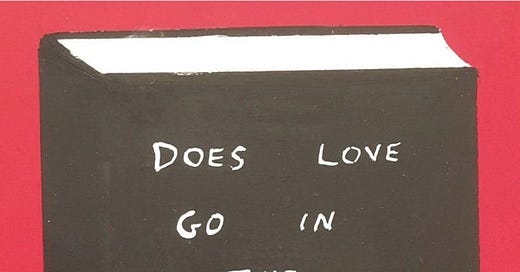 DOES LOVE
GO IN